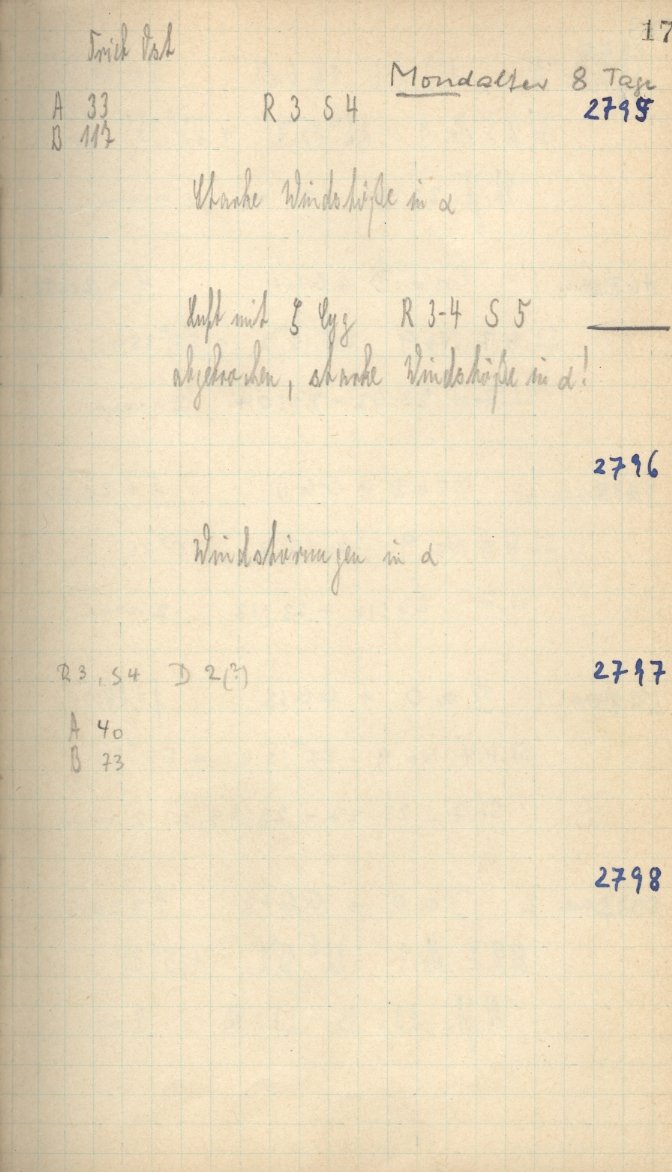 17
Ost
Mondalter 8 Tage
A 33 R 3 S 4 2795
B 117
Starke Windstöße in α
Luft mit ζ Cyg R 3-4 S 5
abgebrochen, starke Windstöße in α!
2796
Windstörungen in α
R 3, S 4 D 2(?) 2797
A 40
B 73
2798